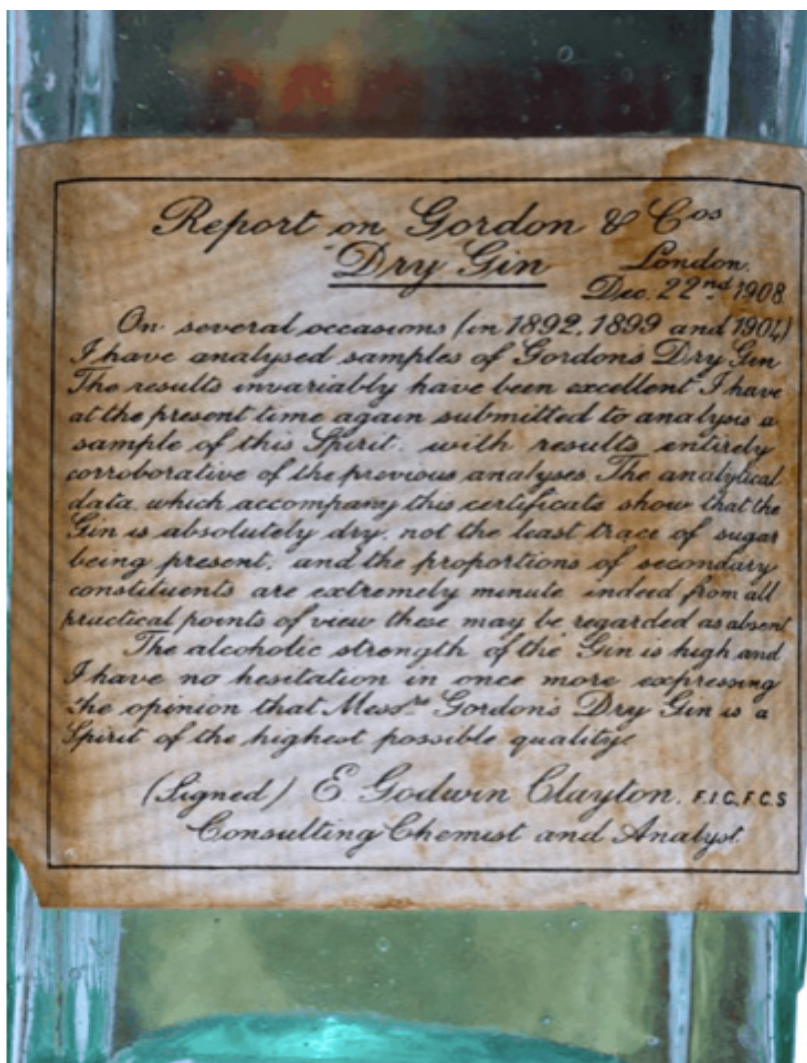 Report on Gordon & Cos
Dry Gin
London.
Dec. 22nd 1908.
On several occasions (in 1892, 1899 and 1904)
I have analysed samples of Gordons Dry Gin
The results invariably have been excellent I have
at the present time again submitted to analysis a
sample of this Spirit. with results entirely
corroborative of the previous analyses. The analytical
data, which accompany this certificate show that the
Gin is absolutely dry, not the least trace of sugar
being present, and the proportions of secondary
constituents are extremely minute indeed from all
practical points of view these may be regarded as absent
The alcoholic strength of the Gin is high and
I have no hesitation in once more expressing
the opinion that Messrs Gordon's Dry Gin is a
Spirit of the highest possible quality.
(Signed) E. Godwin Clayton, F.I.C, F.C.S
Consulting Chemist and Analyst.